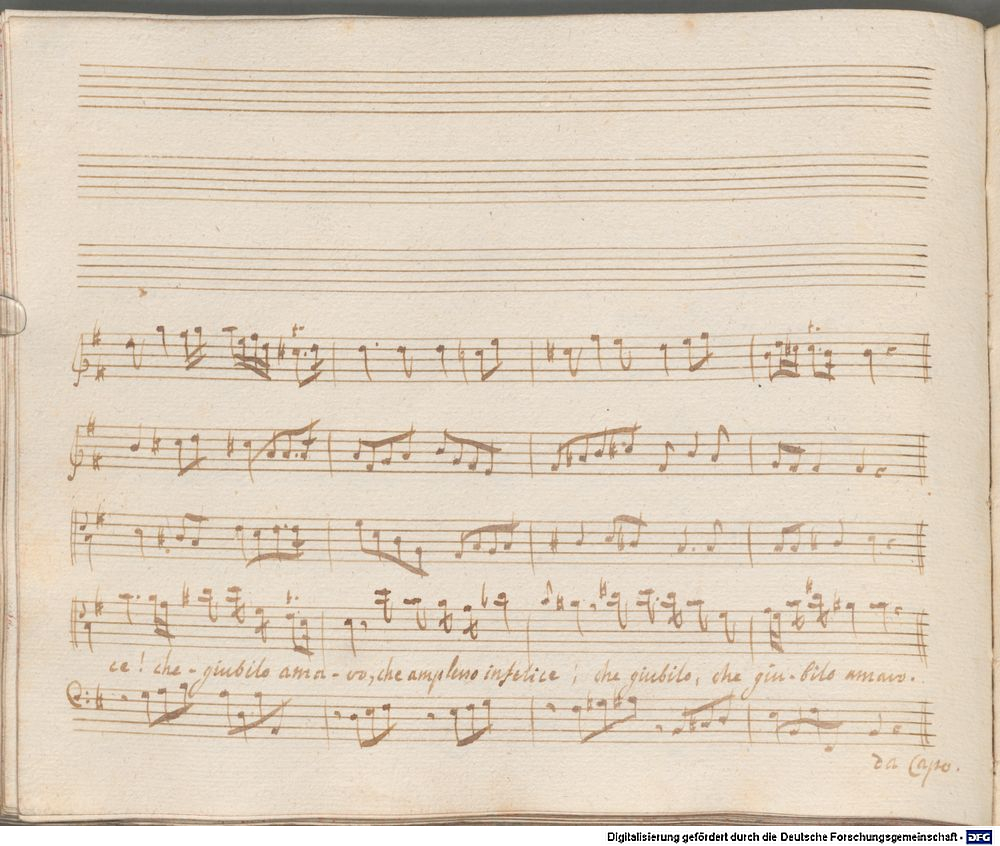 ce! che-giubilo ama-ro, che amplesso infelice! che giubilo, che giu-bilo amaro.
da Capo.
Digitalisierung gefördert durch die Deutsche Forschungsgemeinschaft - DFG